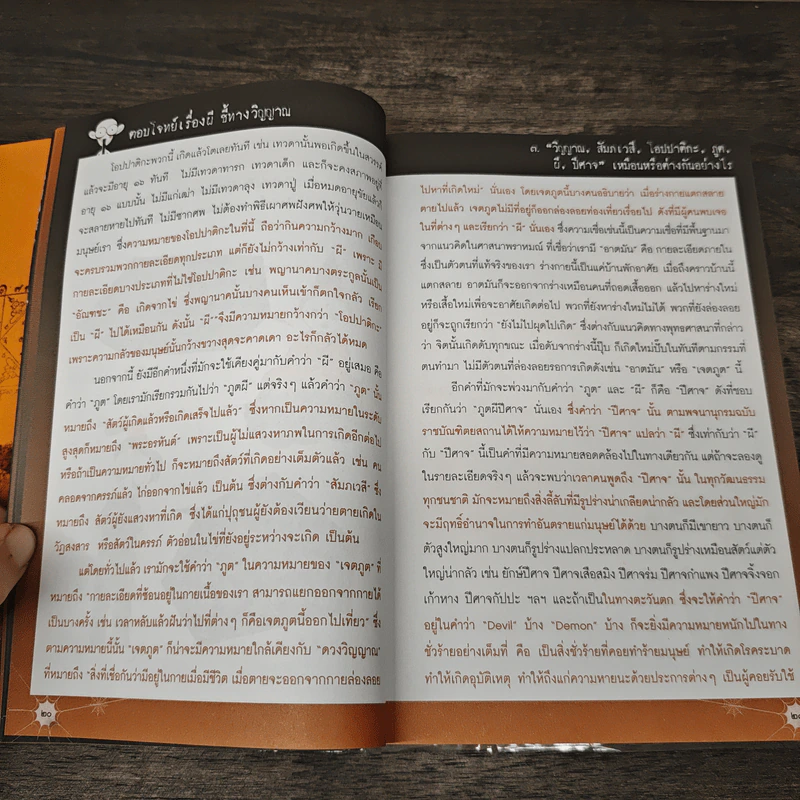 ตอบโจทย์เรื่องผี ชี้ทางวิญญาณ
โอปปาติกะพวกนี้ เกิดแล้วโตเลยทันที เช่น เทวดานั้นพอเกิดขึ้นในสวรรค์
แล้วจะมีอายุ ๑๖ ทันที ไม่มีเทวดาทารก เทวดาเด็ก และก็จะคงสภาพอยู่ที่
อายุ ๑๖ แบบนั้น ไม่มีแก่เฒ่า ไม่มีเทวดาลุง เทวดาปู่ เมื่อหมดอายุขัยแล้วก็
จะสลายหายไปทันที ไม่มีซากศพ ไม่ต้องทำพิธีเผาศพฝังศพให้วุ่นวายเหมือน
มนุษย์เรา ซึ่งความหมายของโอปปาติกะในที่นี้ ถือว่ากินความกว้างมาก เกือบ
จะครบรวมพวกกายละเอียดทุกประเภท แต่ก็ยังไม่กว้างเท่ากับ "ผี" เพราะ มี
กายละเอียดบางประเภทที่ไม่ใช่โอปปาติกะ เช่น พญานาคบางตระกูลนั้นเป็น
"อัณฑชะ" คือ เกิดจากไข่ ซึ่งพญานาคนั้นบางคนเห็นเข้าก็ตกใจกลัว เรียก
เป็น "ผี" ไปได้เหมือนกัน ดังนั้น "ผี" จึงมีความหมายกว้างกว่า "โอปปาติกะ"
เพราะความกลัวของมนุษย์นั้นกว้างขวางสุดจะคาดเดา อะไรก็กลัวได้หมด
นอกจากนี้ ยังมีอีกคำหนึ่งที่มักจะใช้เคียงคู่มากับคำว่า "ผี" อยู่เสมอ คือ
คำว่า "ภูต" โดยเรามักเรียกรวมกันไปว่า "ภูตผี" แต่จริงๆ แล้วคำว่า "ภูต" นั้น
หมายถึง "สัตว์ผู้เกิดแล้วหรือเกิดเสร็จไปแล้ว" ซึ่งหากเป็นความหมายในระดับ
สูงสุดก็หมายถึง "พระอรหันต์" เพราะเป็นผู้ไม่แสวงหาภพในการเกิดอีกต่อไป
หรือถ้าเป็นความหมายทั่วไป ก็จะหมายถึงสัตว์ที่เกิดอย่างเต็มตัวแล้ว เช่น คน
คลอดจากครรภ์แล้ว ไก่ออกจากไข่แล้ว เป็นต้น ซึ่งต่างกับคำว่า "สัมภเวสี" ซึ่ง
หมายถึง สัตว์ผู้ยังแสวงหาที่เกิด ซึ่งได้แก่ปุถุชนผู้ยังต้องเวียนว่ายตายเกิดใน
วัฏสงสาร หรือสัตว์ในครรภ์ ตัวอ่อนในไข่ที่ยังอยู่ระหว่างจะเกิด เป็นต้น
แต่โดยทั่วไปแล้ว เรามักจะใช้คำว่า "ภูต" ในความหมายของ "เจตภูต" ที่
หมายถึง "กายละเอียดที่ซ้อนอยู่ในกายเนื้อของเรา สามารถแยกออกจากกายได้
เป็นบางครั้ง เช่น เวลาหลับแล้วฝันว่าไปที่ต่างๆ ก็คือเจตภูตนี้ออกไปเที่ยว" ซึ่ง
ตามความหมายนี้นั้น "เจตภูต" ก็น่าจะมีความหมายใกล้เคียงกับ "ดวงวิญญาณ"
ที่หมายถึง "สิ่งที่เชื่อกันว่ามีอยู่ในกายเมื่อมีชีวิต เมื่อตายจะออกจากกายล่องลอย
๒๐
๓. "วิญญาณ, สัมภเวสี, โอปปาติกะ, ภูต,
ผี, ปีศาจ" เหมือนหรือต่างกันอย่างไร
ไปหาที่เกิดใหม่" นั่นเอง โดยเจตภูตนี้บางคนอธิบายว่า เมื่อร่างกายแตกสลาย
ตายไปแล้ว เจตภูตไม่มีที่อยู่ก็ออกล่องลอยท่องเที่ยวเรื่อยไป ดังที่มีผู้คนพบเจอ
ในที่ต่างๆ และเรียกว่า "ผี" นั่นเอง ซึ่งความเชื่อเช่นนี้เป็นความเชื่อที่มีพื้นฐานมา
จากแนวคิดในศาสนาพราหมณ์ ที่เชื่อว่าเรามี "อาตมัน" คือ กายละเอียดภายใน
ซึ่งเป็นตัวตนที่แท้จริงของเรา ร่างกายนี้เป็นแค่บ้านพักอาศัย เมื่อถึงคราวบ้านนี้
แตกสลาย อาตมันก็จะออกจากร่างเหมือนคนที่ถอดเสื้อออก แล้วไปหาร่างใหม่
หรือเสื้อใหม่เพื่อจะอาศัยเกิดต่อไป พวกที่ยังหาร่างใหม่ไม่ได้ พวกที่ยังล่องลอย
อยู่ก็จะถูกเรียกว่า "ยังไม่ไปผุดไปเกิด" ซึ่งต่างกับแนวคิดทางพุทธศาสนาที่กล่าว
ว่า จิตนั้นเกิดดับทุกขณะ เมื่อดับจากร่างนี้ปุ๊บ ก็เกิดใหม่ปั๊บในทันทีตามกรรมที่
ตนทำมา ไม่มีตัวตนที่ล่องลอยรอการเกิดดังเช่น "อาตมัน" หรือ "เจตภูต" นี้
อีกคำที่มักจะพ่วงมากับคำว่า "ภูต" และ "ผี" ก็คือ "ปีศาจ" ดังที่ชอบ
เรียกกันว่า "ภูตผีปีศาจ" นั่นเอง ซึ่งคำว่า "ปีศาจ" นั้น ตามพจนานุกรมฉบับ
ราชบัณฑิตยสถานได้ให้ความหมายไว้ว่า "ปีศาจ" แปลว่า "ผี" ซึ่งเท่ากับว่า "ผี"
กับ "ปีศาจ" นี้เป็นคำที่มีความหมายสอดคล้องไปในทางเดียวกัน แต่ถ้าจะลองดู
ในรายละเอียดจริงๆ แล้วจะพบว่าเวลาคนพูดถึง "ปีศาจ" นั้น ในทุกวัฒนธรรม
ทุกชนชาติ มักจะหมายถึงสิ่งลี้ลับที่มีรูปร่างน่าเกลียดน่ากลัว และโดยส่วนใหญ่มัก
จะมีฤทธิ์อำนาจในการทำอันตรายแก่มนุษย์ได้ด้วย บางตนก็มีเขายาว บางตนก็
ตัวสูงใหญ่มาก บางตนก็รูปร่างแปลกประหลาด บางตนก็รูปร่างเหมือนสัตว์แต่ตัว
ใหญ่น่ากลัว เช่น ยักษ์ปีศาจ ปีศาจเสือสมิง ปีศาจร่ม ปีศาจกำแพง ปีศาจจิ้งจอก
เก้าหาง ปีศาจกัปปะ ฯลฯ และถ้าเป็นในทางตะวันตก ซึ่งจะให้คำว่า "ปีศาจ"
อยู่ในคำว่า "Devil" บ้าง "Demon" บ้าง ก็จะยิ่งมีความหมายหนักไปในทาง
ชั่วร้ายอย่างเต็มที่ คือ เป็นสิ่งชั่วร้ายที่คอยทำร้ายมนุษย์ ทำให้เกิดโรคระบาด
ทำให้เกิดอุบัติเหตุ ทำให้ถึงแก่ความหายนะด้วยประการต่างๆ เป็นผู้คอยรับใช้
๒๑